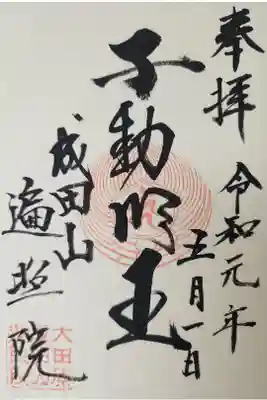 奉拝
令和元年
五月一日
不動明王
成田山
遍照院